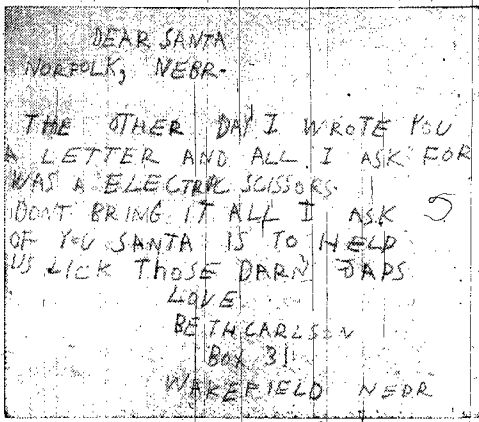 DEAR SANTA
NORFOLK, NEBR.
THE OTHER DAY I WROTE YOU
A LETTER AND ALL I ASK FOR
WAS A ELECTRIC SCISSORS.
DONT BRING IT ALL I ASK
OF YOU SANTA IS TO HELP
US LICK THOSE DARN JAPS
LOVE
BETH CARLSON
BOX 31
WAKEFIELD NEBR